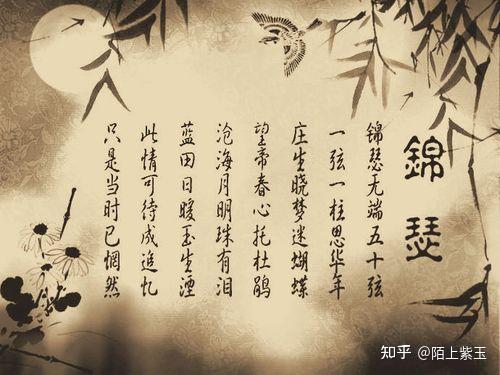 錦瑟
锦瑟无端五十弦
一弦一柱思华年
庄生晓梦迷蝴蝶
望帝春心托杜鹃
沧海月明珠有泪
蓝田日暖玉生湮
此情可待成追忆
只是当时已惘然
知乎 @陌上紫玉